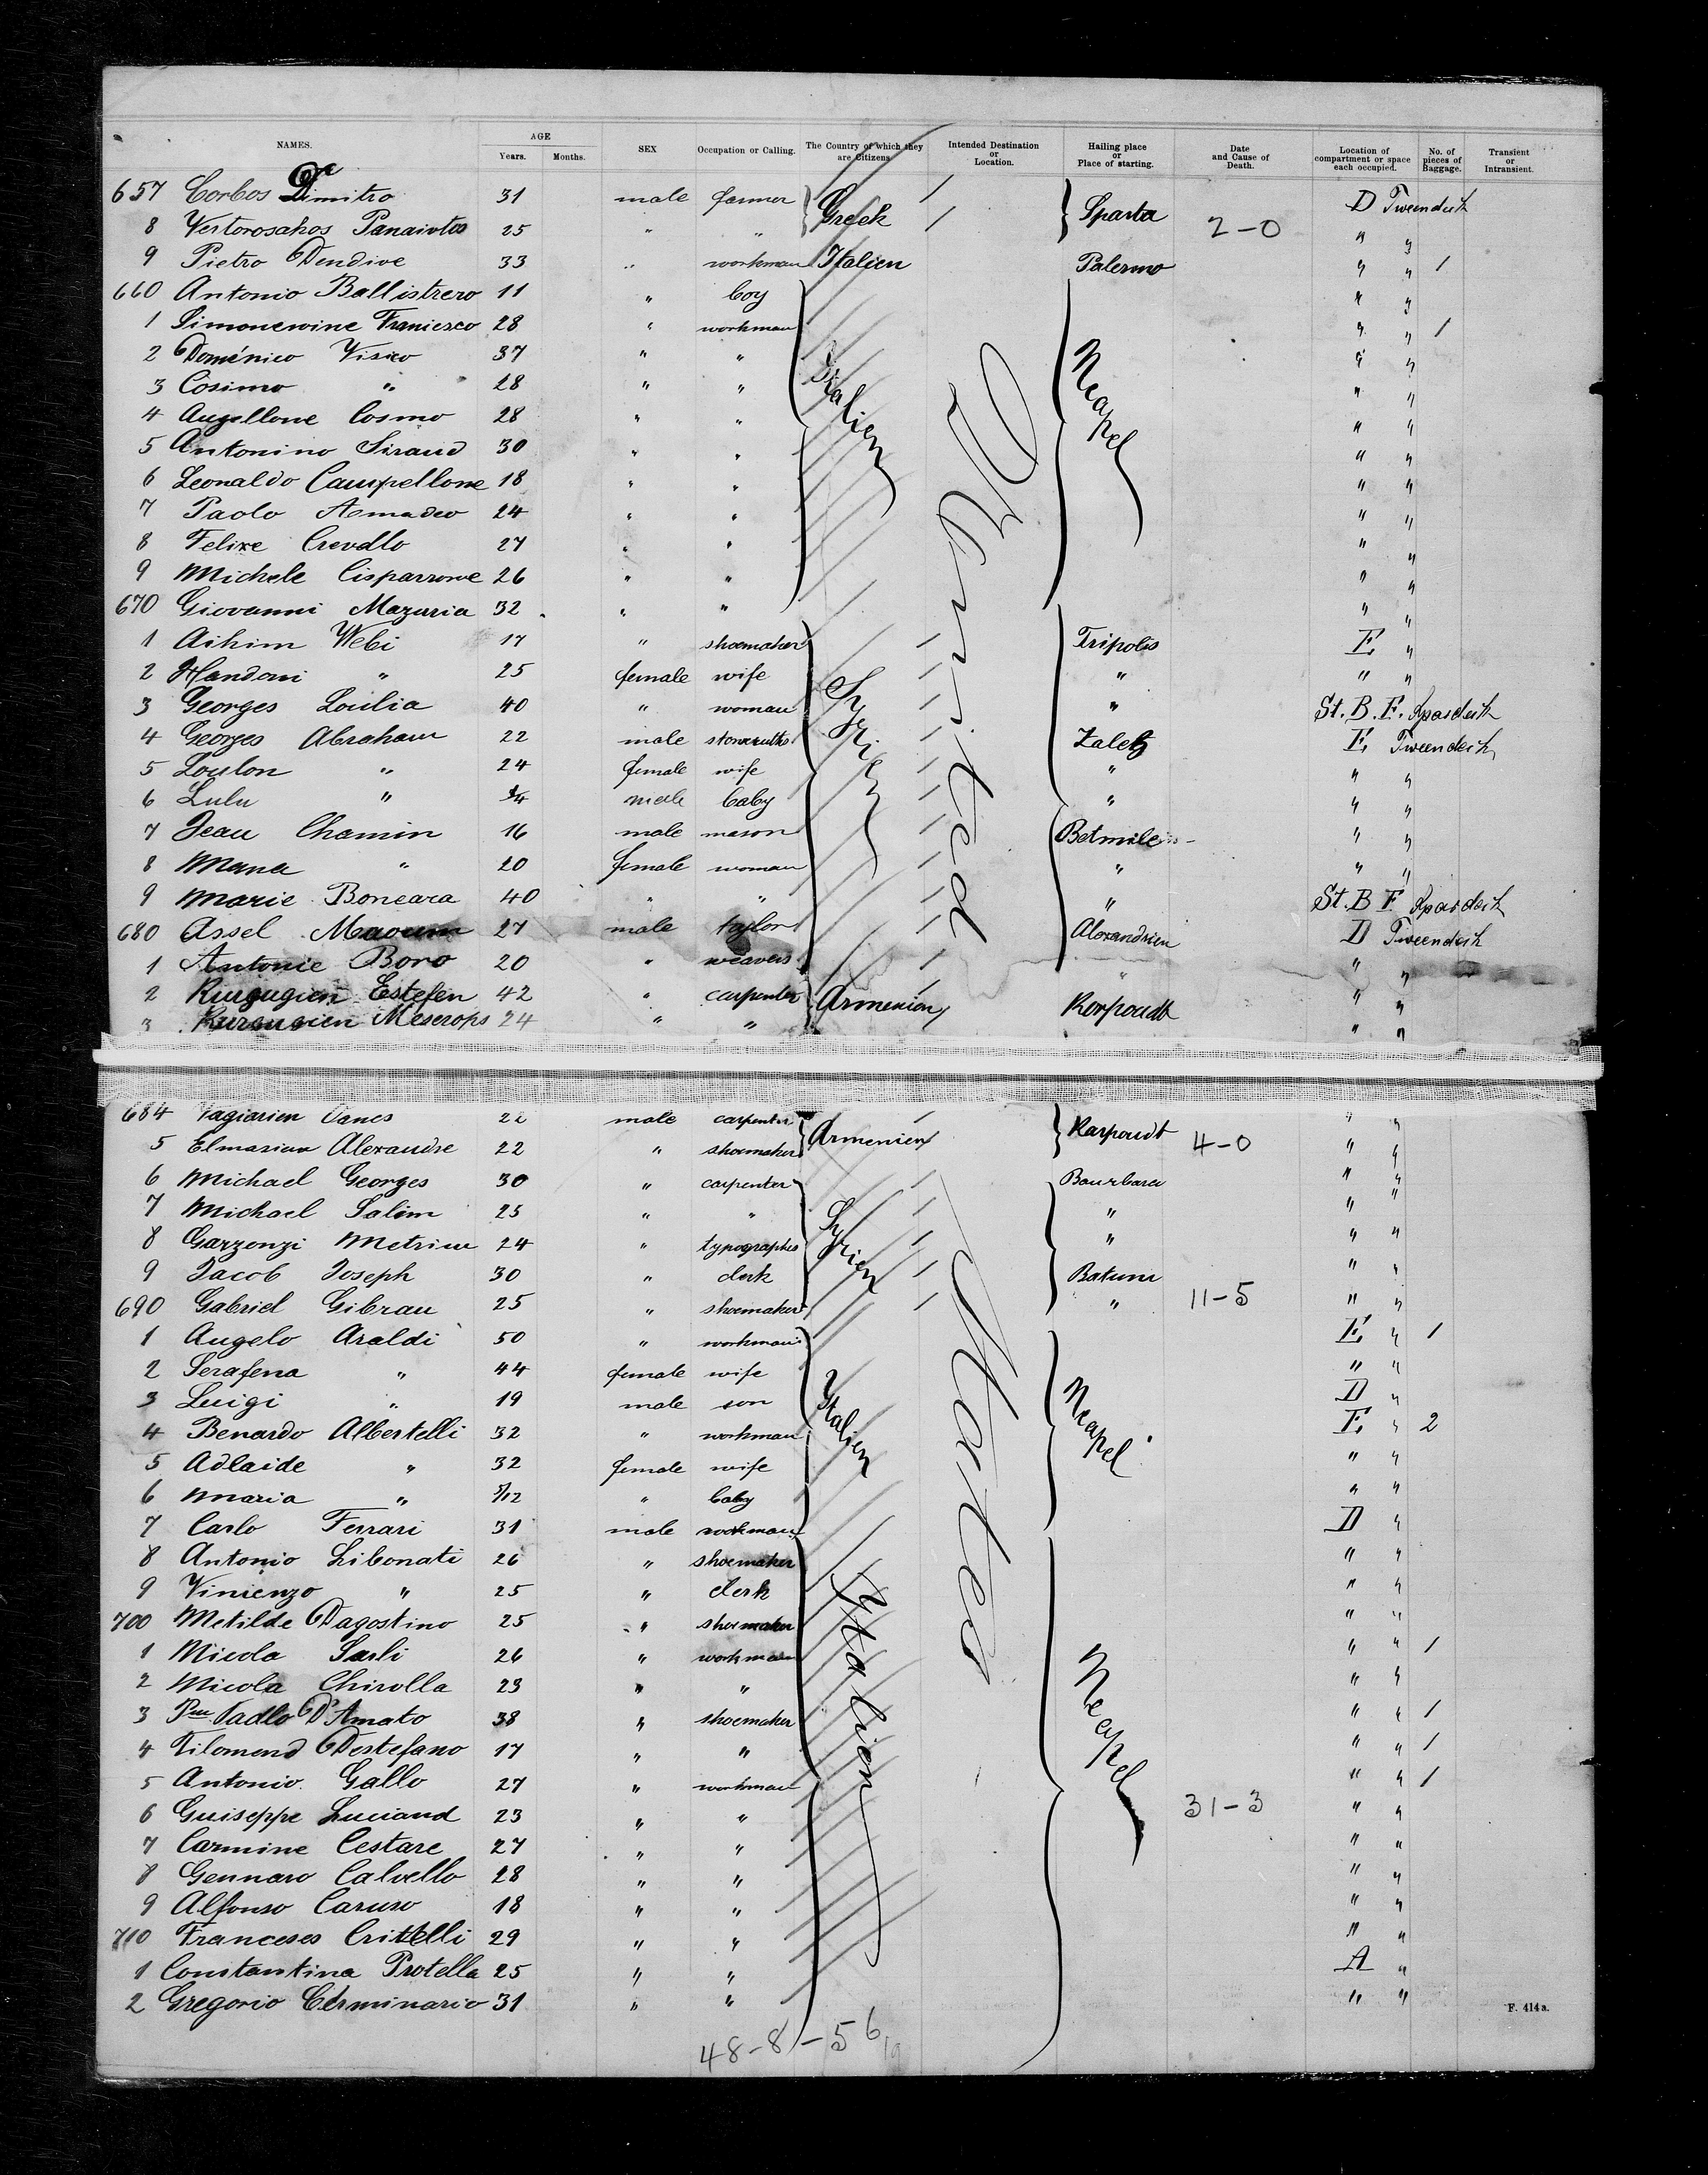 NAMES. AGE Years. Months. SEX Occupation or Calling. The Country of which they are Citizens Intended Destination or Location. Hailing place or Place of starting. Date and Cause of Death. Location of compartment or space each occupied. No. of pieces of Baggage. Transient or Intransient.
657 Corbos Dimitro 31 male farmer Greek Sparta D Tweendeck
8 Vertorosahos Panaiotos 25 " " 2-0 " "
9 Pietro Dendive 33 " workman Italien Palermo " " 1
660 Antonio Ballistrero 11 " boy Italien United Neapel " "
1 Simonewine Franiesco 28 " workman " " 1
2 Doménico Visico 37 " " " "
3 Cosimo " 28 " " " "
4 Augellone Cosmo 28 " " " "
5 Antonino Siraud 30 " " " "
6 Leonaldo Campellone 18 " " " "
7 Paolo Asmadeo 24 " " " "
8 Felixe Crevdlo 27 " " " "
9 Michele Cisparrowe 26 " " " "
670 Giovanni Mazuria 32 " " " "
1 Aihim Webi 17 " shoemaker Syrien Tripolis E "
2 Handoni " 25 female wife " " "
3 Georges Loulia 40 " woman " St. B. F. Spardeck
4 Georges Abraham 22 male stonecutter Zaleh E Tweendeck
5 Loulon " 24 female wife " " "
6 Lulu " male baby " " "
7 Jeau Chamin 16 male mason Betmileis " "
8 Mana " 20 female woman " " "
9 Marie Boneara 40 " " " St. B F Spardeck
680 Assel Maoum 27 male taylor Alexandrien D Tweendeck
1 Antonie Boro 20 " weavers " " "
2 Kurgugien Estefen 42 " carpenter Armenien Korpoudt " "
3 Kurgugien Meserops 24 " " " "
684 Vagiarien Vanes 22 male carpenter Armenien Karpoudt " "
5 Elmasian Alexandre 22 " shoemaker 4-0 " "
6 Michael Georges 30 " carpenter Syrien States Bourbara " "
7 Michael Salim 25 " " " " "
8 Garzonzi Metrium 24 " typographes " " "
9 Jacob Joseph 30 " clerk Batum " "
690 Gabriel Gibrau 25 " shoemaker " 11-5 " "
1 Augelo Araldi 50 " workman Italien Neapel E " 1
2 Serafena " 44 female wife " "
3 Luigi " 19 male son D "
4 Benardo Albertelli 32 " workman E " 2
5 Adlaide " 32 female wife " "
6 Maria " 5/12 " baby " "
7 Carlo Ferrari 31 male workman D "
8 Antonio Libonati 26 " shoemaker Italien Neapel " "
9 Vinienzo " 25 " clerk " "
700 Metilde Dagostino 25 " shoemaker " "
1 Nicola Sarli 26 " workman " " 1
2 Nicola Chirolla 23 " " " "
3 Padlo D'Amato 38 " shoemaker " " 1
4 Filomend Destefano 17 " " " " 1
5 Antonio Gallo 27 " workman " " 1
6 Guiseppe Luciand 23 " " 31-3 " "
7 Carmine Cestare 27 " " " "
8 Gennaro Calvello 28 " " " "
9 Alfonso Caruso 18 " " " "
710 Franceses Crittelli 29 " " " "
1 Constantina Protella 25 " " A "
2 Gregorio Cerminario 31 " " " "
F. 414a.
48-8-56